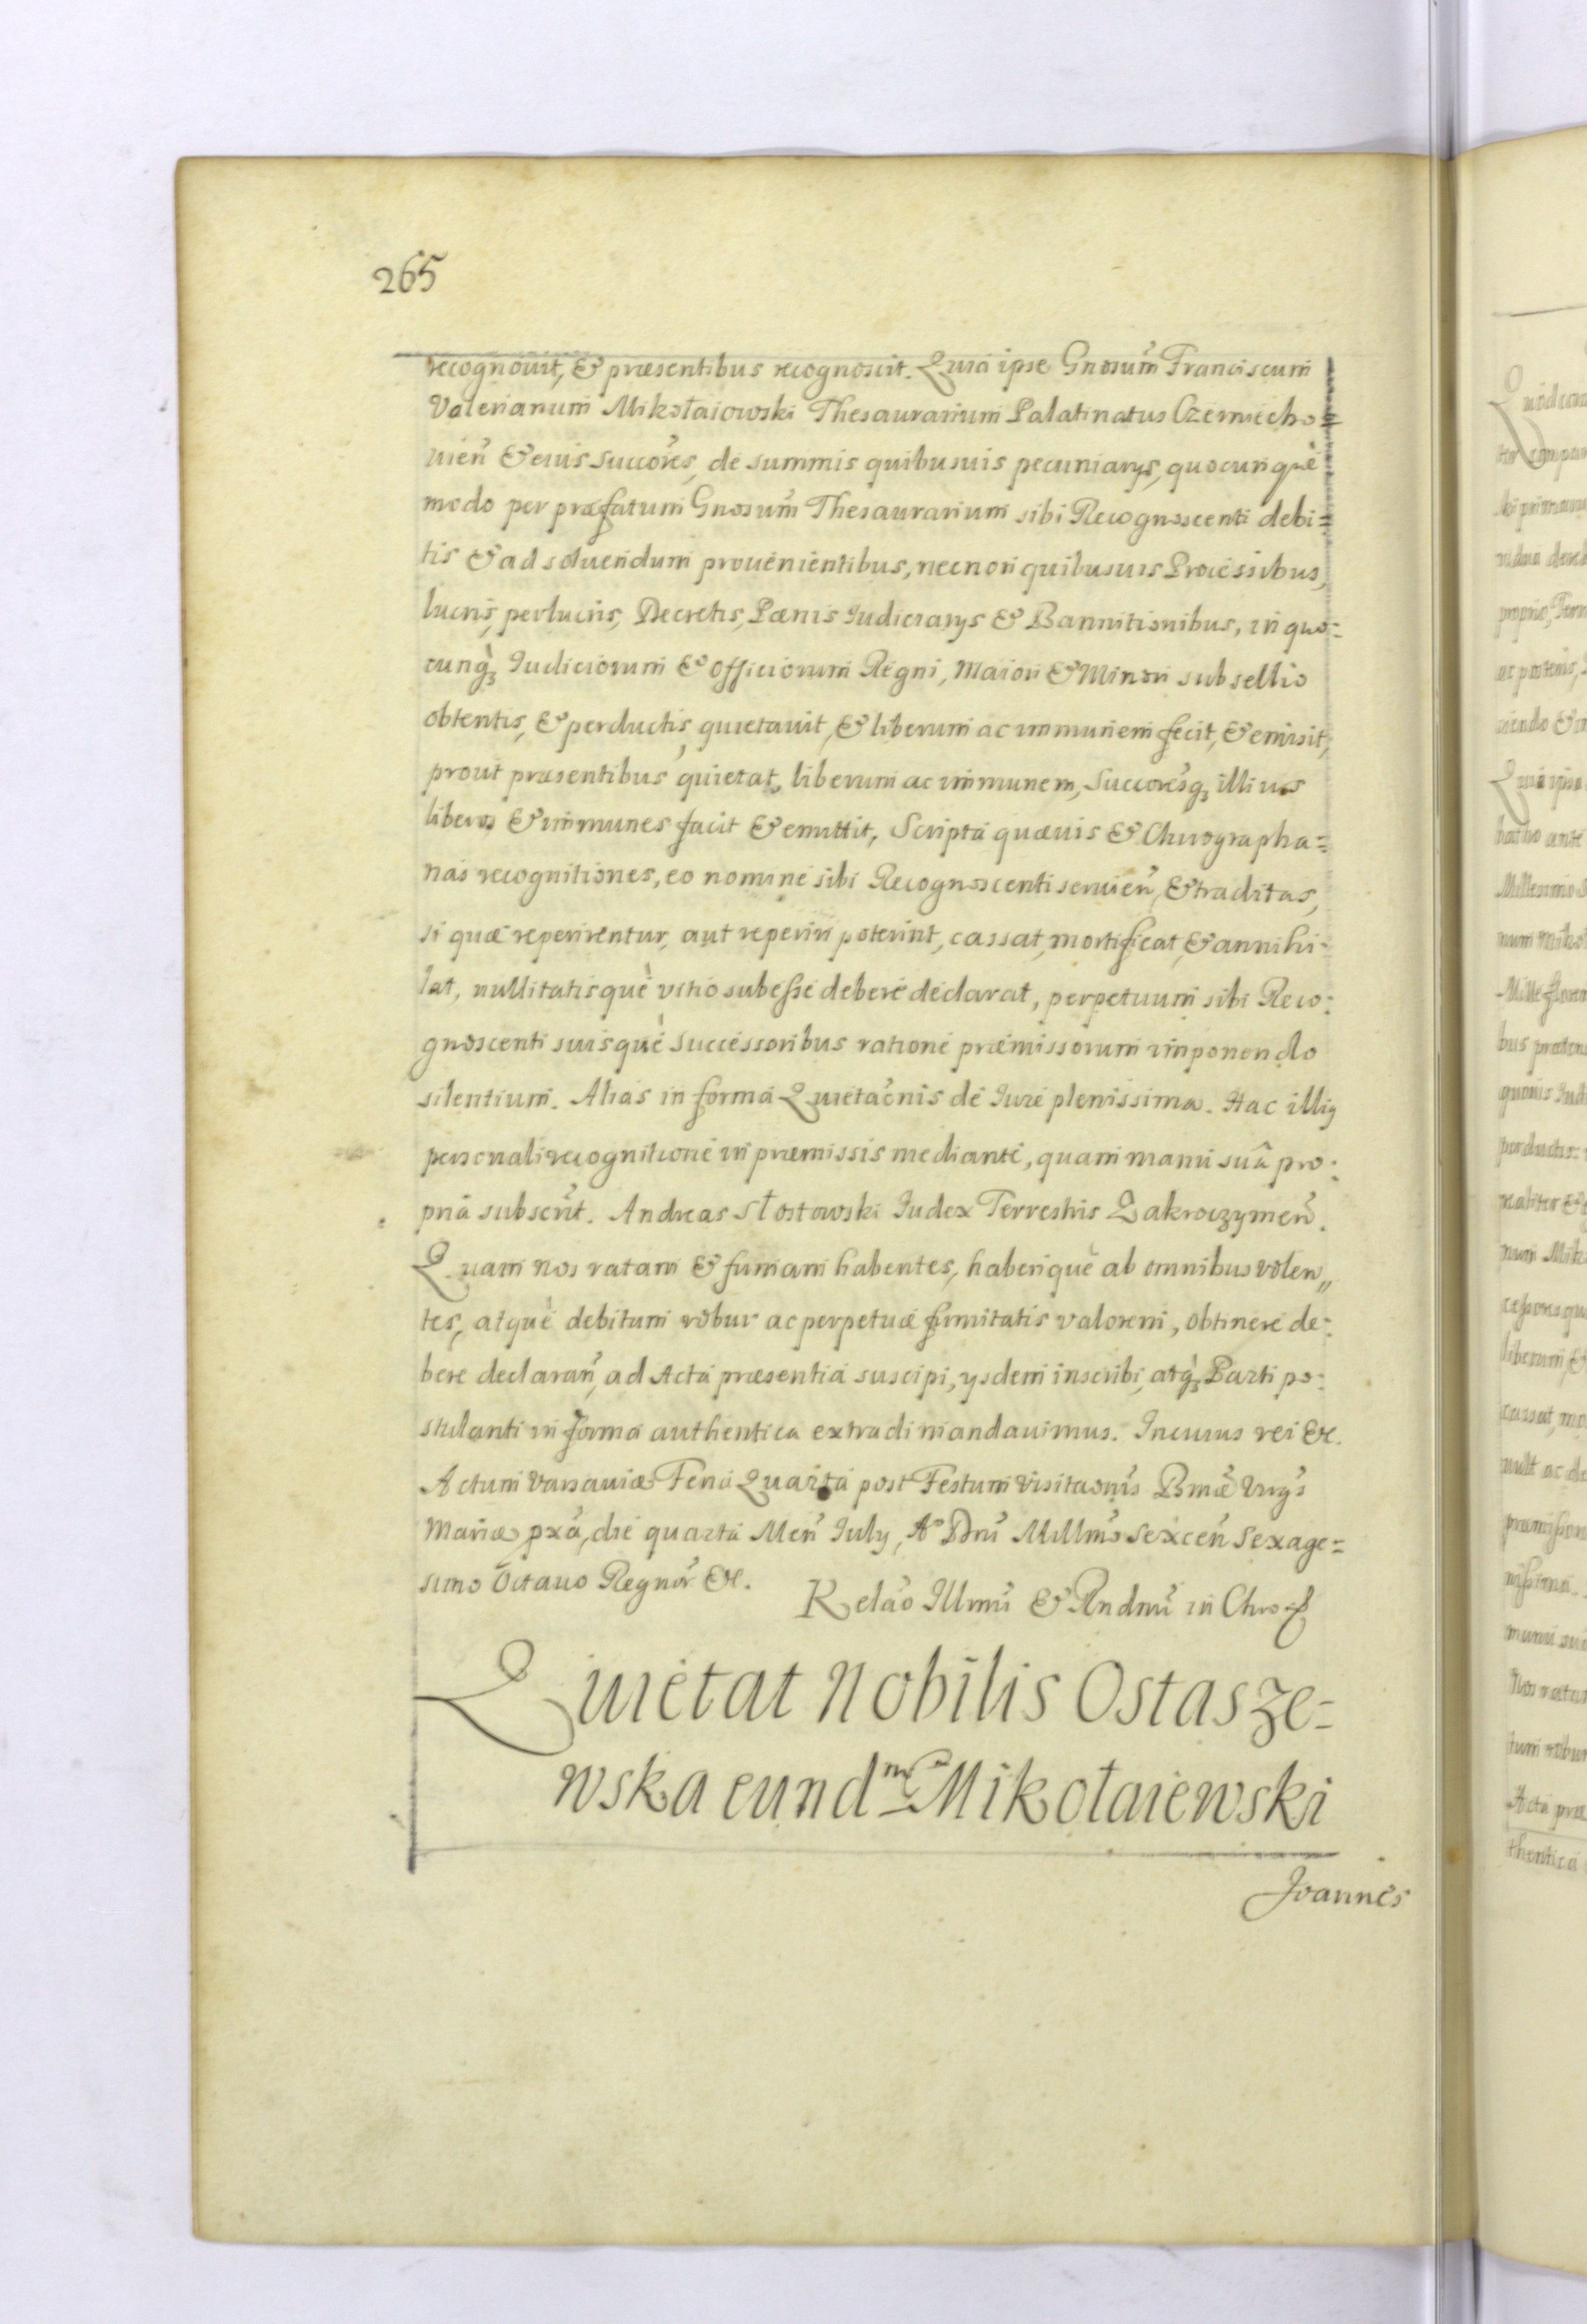 265
recognovit, & præsentibus recognoscit. Quia ipse Gnosum̃ Franciscum
Valerianum Mikołaiowski Thesaurarium Palatinatus Czerniecho=
uien̄ & eius succores, de summis quibusuis pecuniarys, quocunquè
modo per præfatum Gnosum̃ Thesaurarium sibi Recognoscenti debi=
tis & ad soluendum prouenientibus, necnon quibusuis Processibus,
lucris, perlucris, Decretis, Pœnis Iudiciarys & Bannitionibus, in quo=
cunq̀ʒ Iudiciorum & officiorum Regni, Maiori & Minori subsellio
obtentis, & perductis, quietauit, & liberum ac immunem fecit, & emisit,
prout præsentibus quietat, liberum ac immunem, Succoresqʒ illius
liberos & immunes facit & emittit, Scripta quæuis & Chirographa=
nas recognitiones, eo nomine sibi Recognoscenti seruien̄, & traditas,
si quæ reperirentur, aut reperiri poterint, cassat, mortificat, & annihi=
lat, nullitatisquè vitio subesse debere declarat, perpetuum sibi Reco=
gnoscenti suisquè successoribus ratione præmissorum imponendo
silentium. Alias in forma Quietac̃nis de Iure plenissima. Hac illiꝯ
personali recognitione in præmissis mediante, quam manu suâ pro=
priâ subscrit̃. Andreas Słostowski Iudex Terrestris Zakroczymen̄.
Quam nos ratam & firmam habentes, haberiquè ab omnibus volen„
tes, atquè debitum robur ac perpetuæ firmitatis valorem, obtinere de=
bere declaran̄, ad Acta præsentia suscipi, ysdem inscribi, atq̀ʒ Parti po=
stulanti in forma authentica extradi mandauimus. In cuius rei &c.
Actum Varsauiæ Feria Quarta post Festum Visitaonis̃ Bmæ̃ Virgs̃
Mariæ pxã, die quarta Men̄ July, Aº Dni̅ Millmõ Sexcen̄ Sexage=
simo Octauo Regnor̃ &c.
Relão Illmi̅ & Rndmi̅ in Chro ꝑ
Quietat Nobilis Ostasze=
wska eundᵐ G Mikołaiewski
Joannes